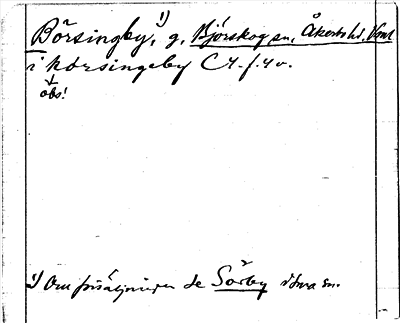 Börsingby,¹⁾ g, Björskog sn, Åkerbo hd, Vsml
i korsingeby C4. f. 4 v.
obs!
1) Om försäljningen se Sörby i dma sn.